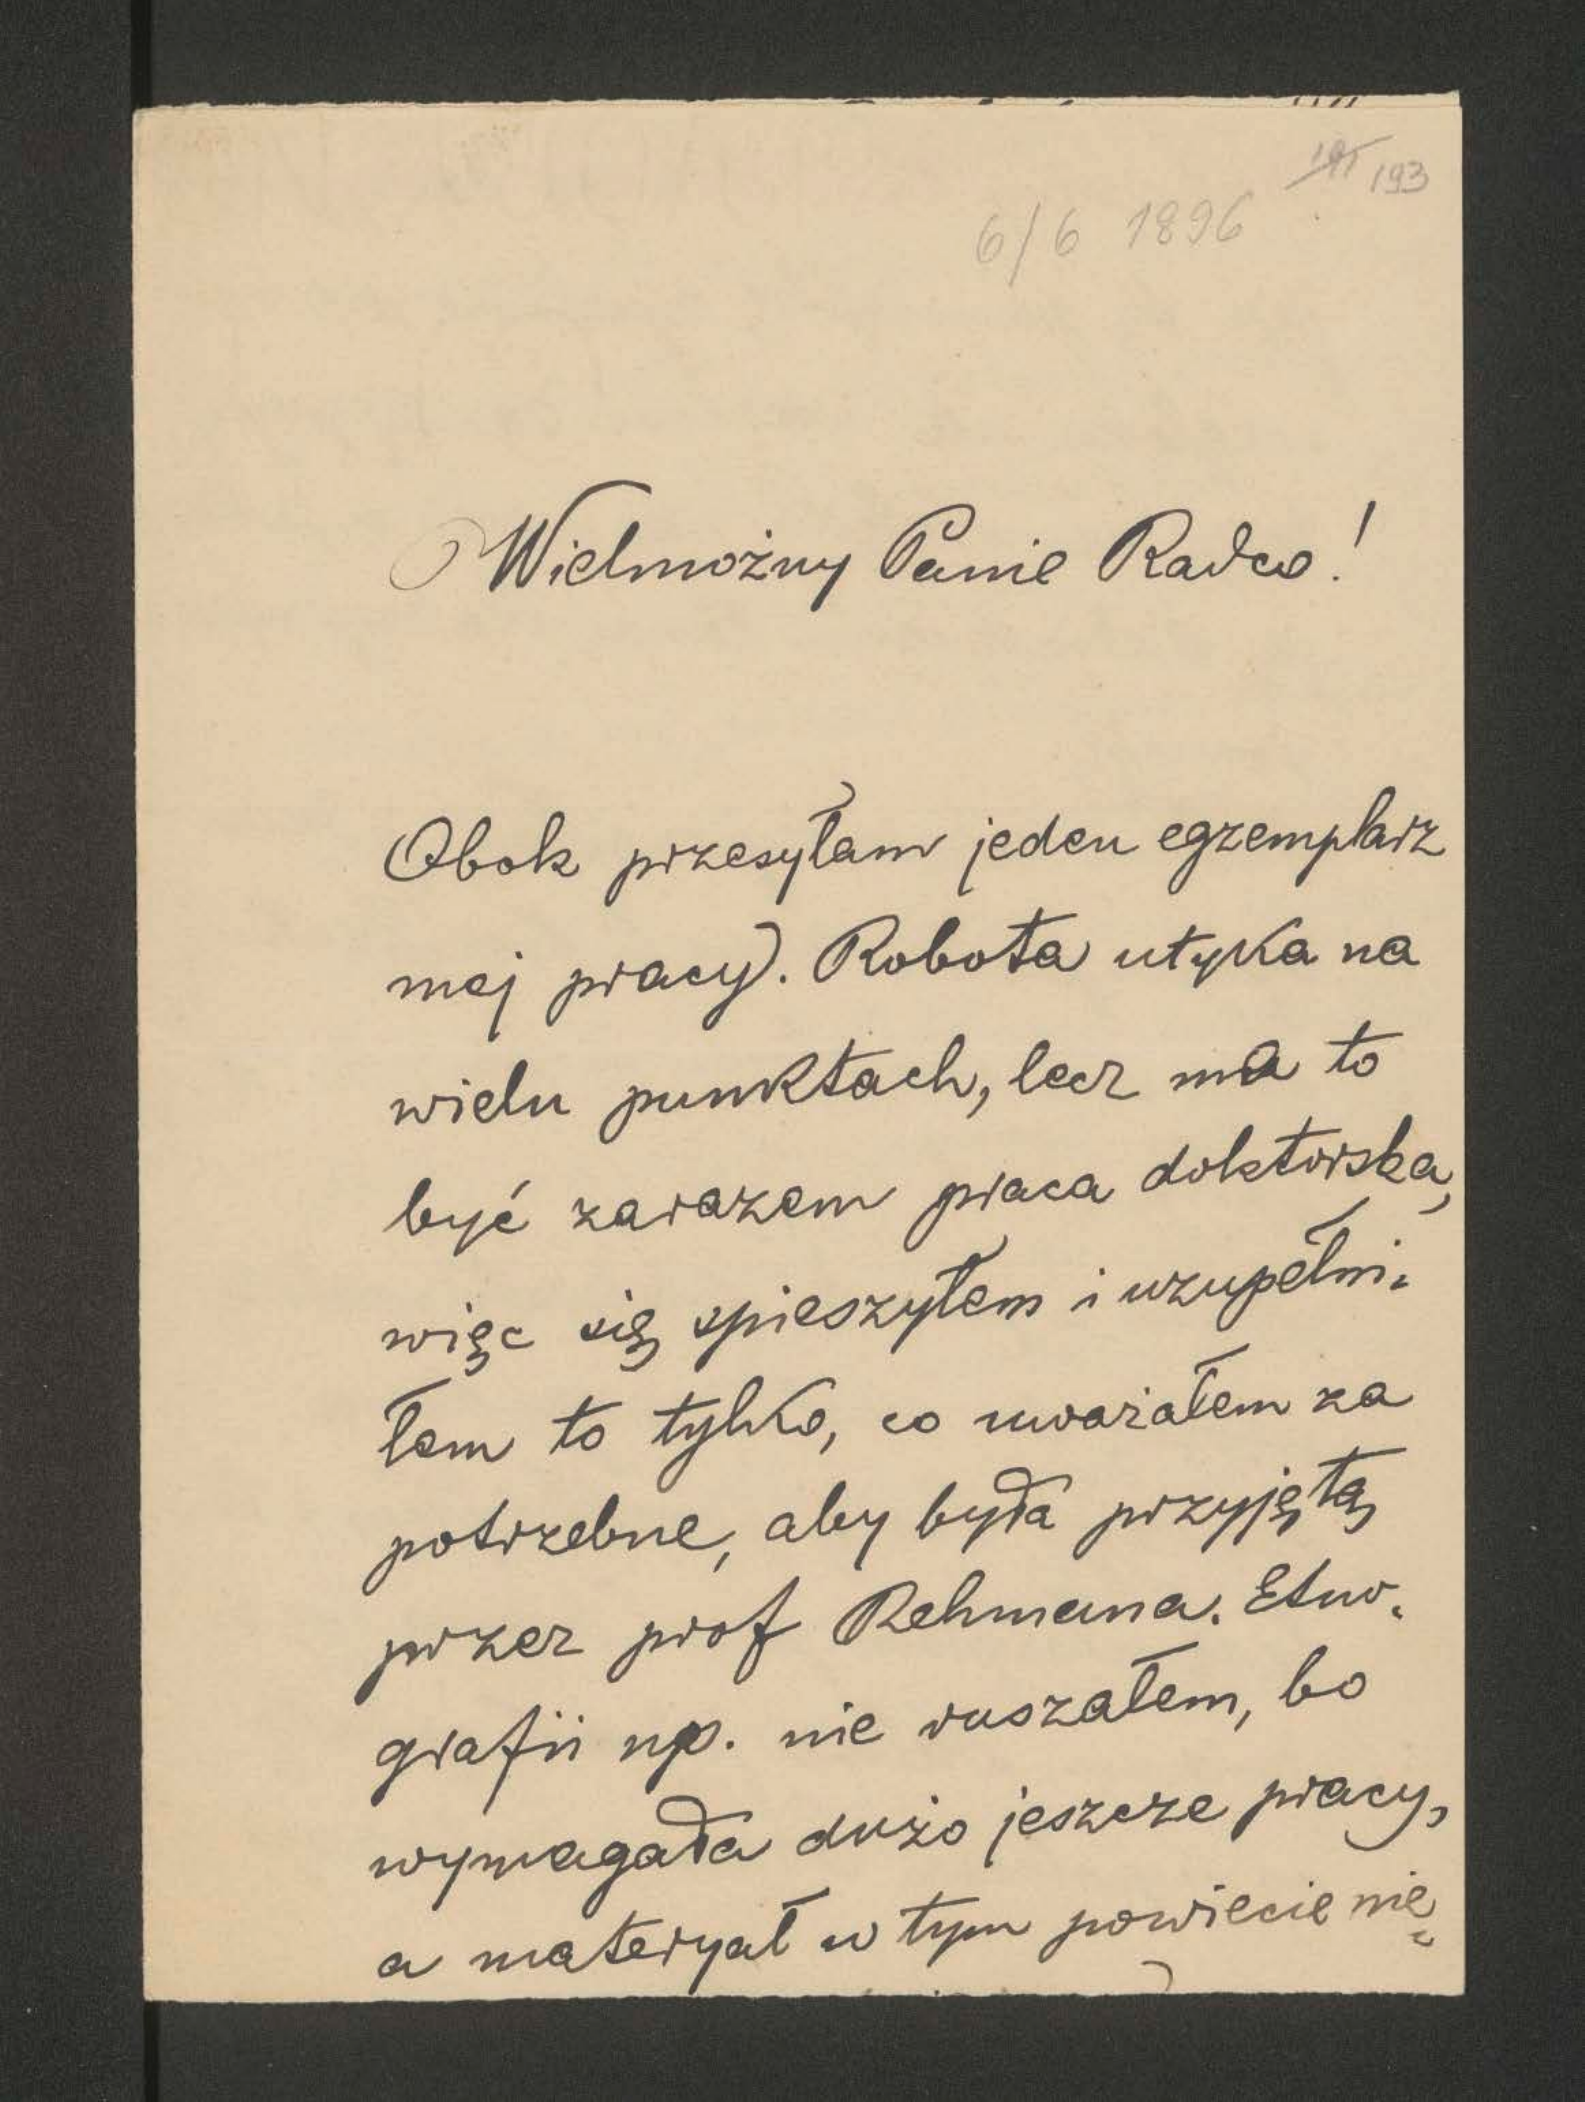 193
6/6 1896
Wielmożny Panie Radco!
Obok przesyłam jeden egzemplarz
mej pracy. Robota utyka na
wielu punktach, lecz ma to
być zarazem praca doktorska,
więc się spieszyłem i uzupełni-
łem to tylko, co uważałem za
potrzebne, aby była przyjętą
przez prof Rehmana. Etno-
grafii np. nie ruszałem, bo
wymagała dużo jeszcze pracy,
a materyał w tym powiecie nie-